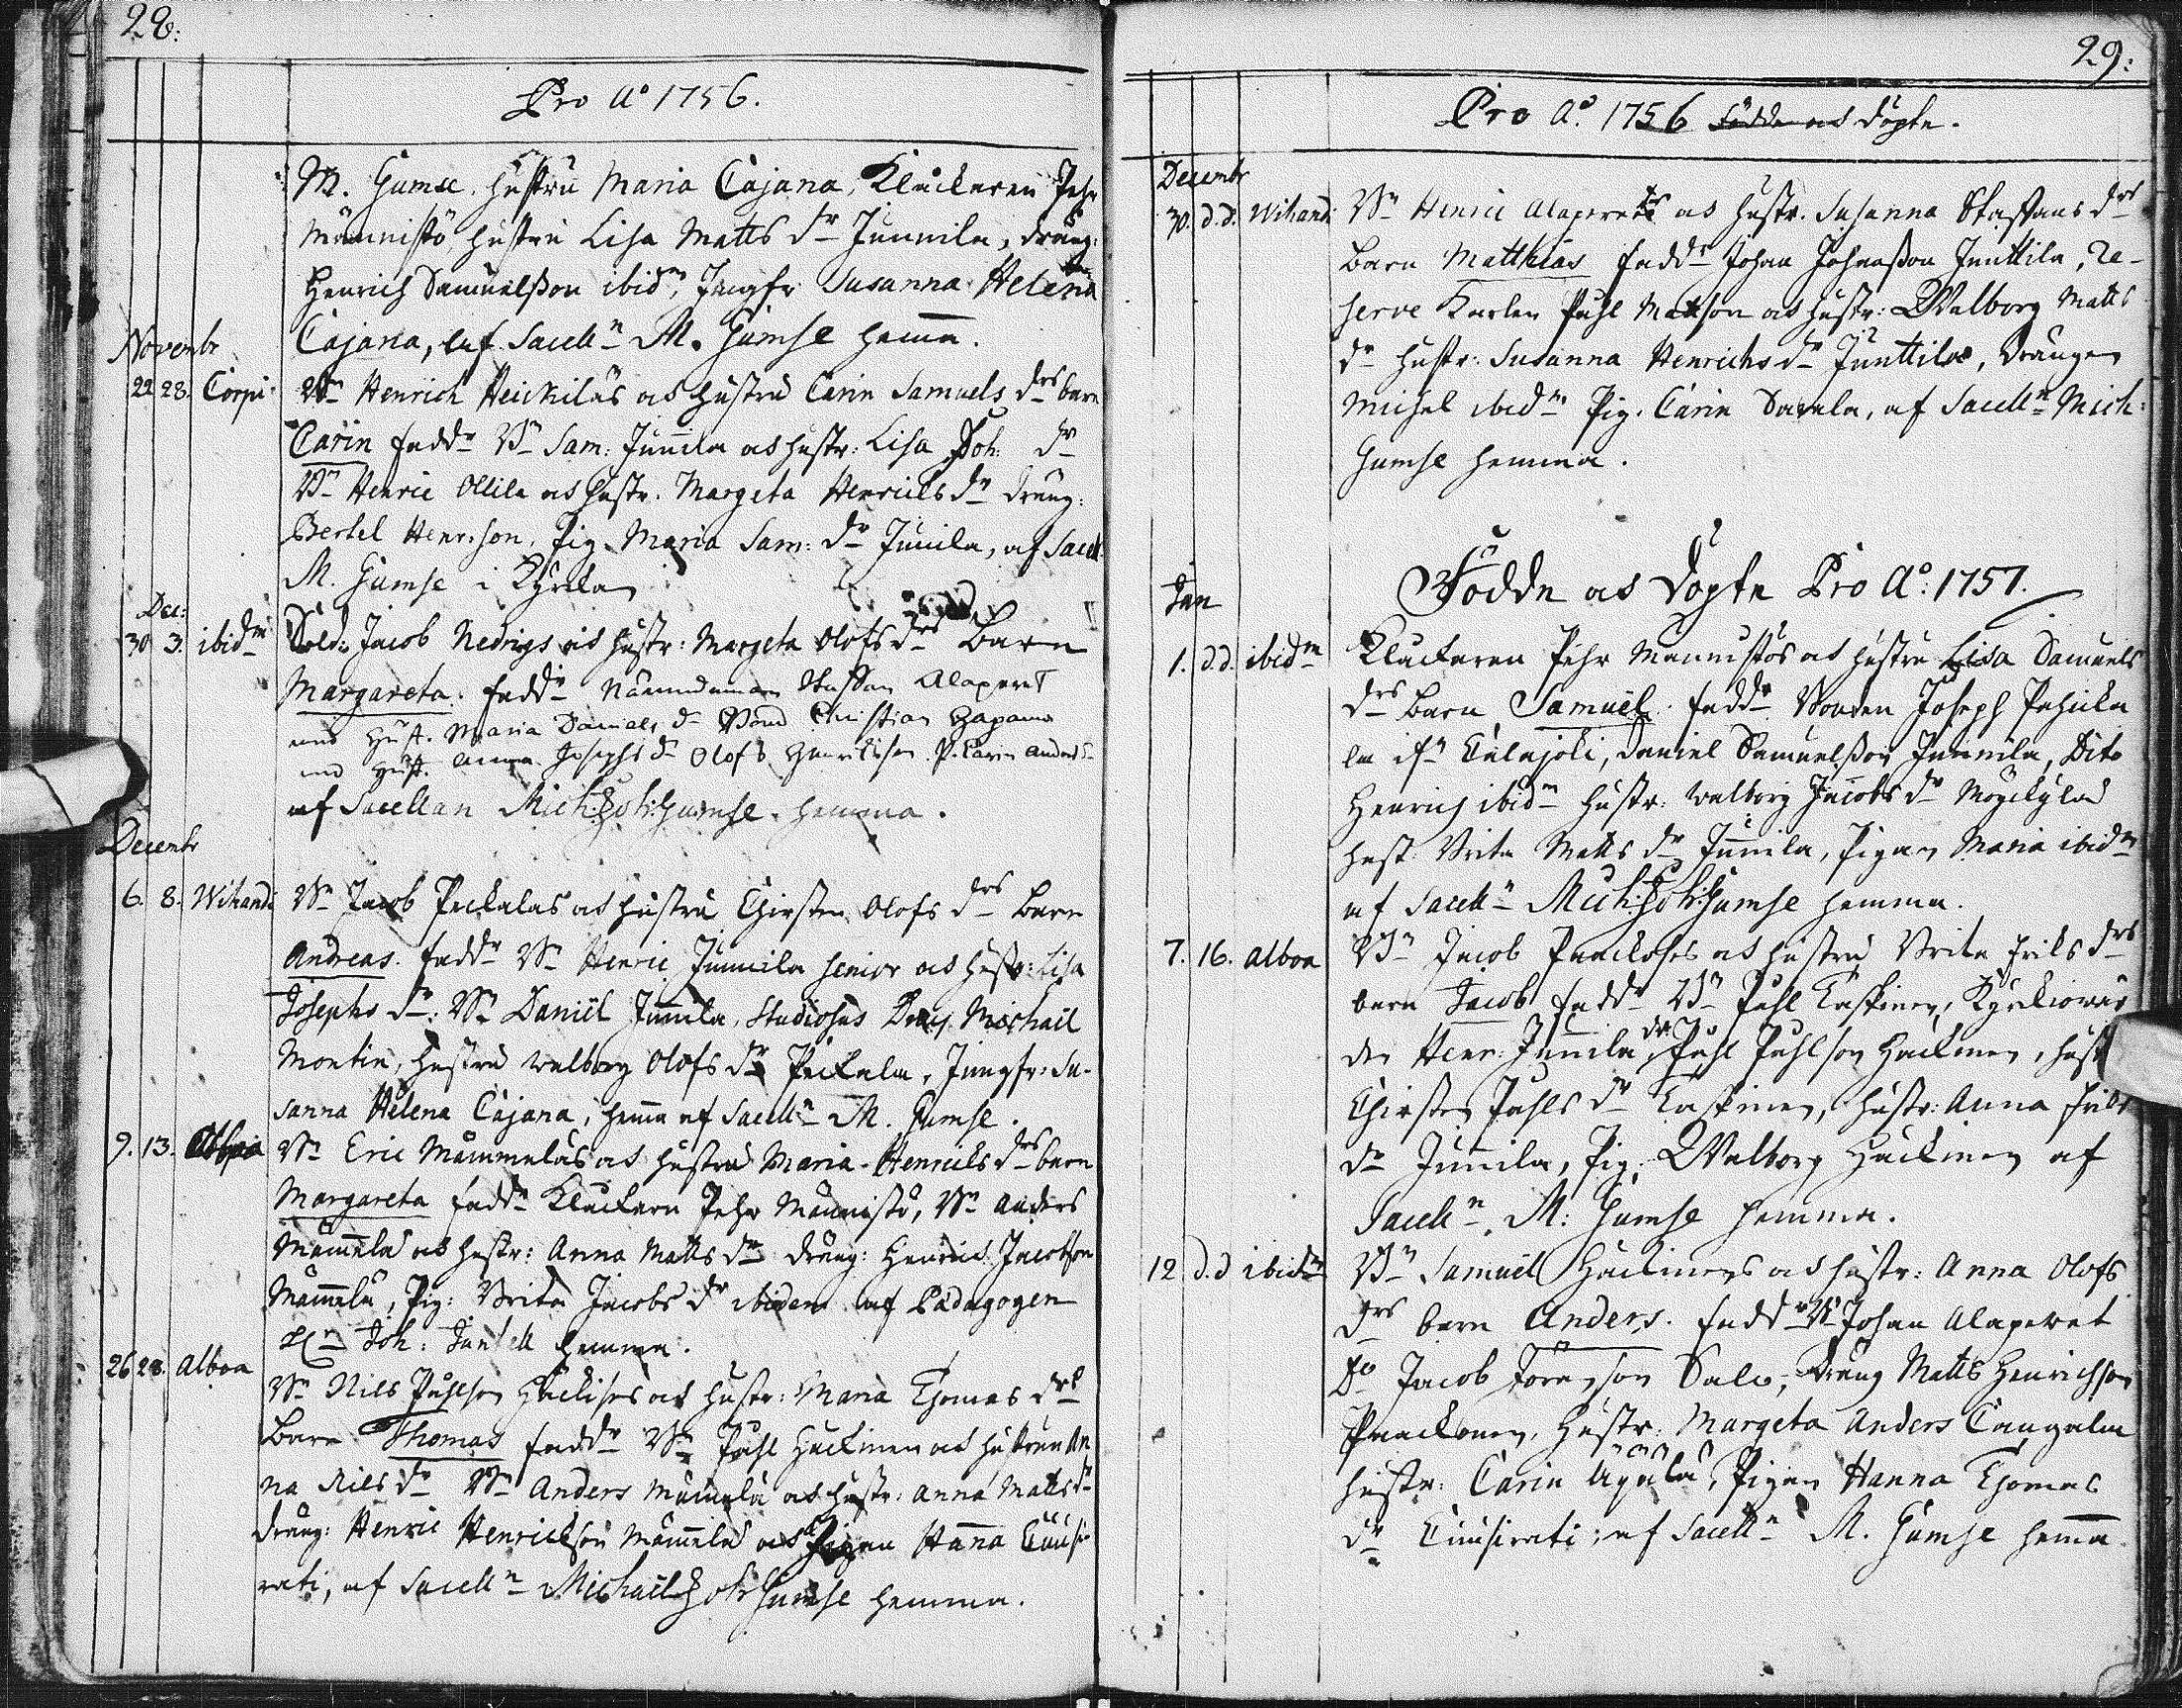 28:
Pro Aº 1756.
M. Gumse. hustru Maria Cajana, Kluckaren Pehr
Männistö, hustru Lisa Matts dr Junnila, dräng:
Henrich Samuelsson ibidm, Jungfr Susanna Helena
Cajana, af Sacelln M. Gumse hema.
Novembr
22 28. Corpi. Bn Henrich Heickilas och hustru Carin Samuels drs barn
Carin faddr Bn Sam: Junila och hustr: Lisa Joh: dr
Bn Henric Ollila och hustr. Margeta Henrichs dr dräng:
Bertel Henr.son, Pig. Maria Sam: dr Junila, af Sacell.
M. Gumse i Kyrkan
Dec:
30 3. ibidm Sold: Jacob Nedrigs och hustr: Margeta Olofs drs Barn
Margareta. faddr Nämndeman Staffan Alaperet
med Hust. Maria Daniels dr Bond Christian Hapama
med Hust. Anna Josephs dr Olofs Henrikson P. Carin Anders dr
af Sacellan Mich: Joh: Gumse. hemma.
Decembr
6. 8. Wihandi Bn Jacob Peckalas och hustru Chirstin Olofs drs Barn
Andreas. faddr Bn Henric Junnila senior och hustr: Lisa
Josephs dr: Bn Daniel Junila, Studiosus Michael
Montin, hustru Walborg Olofs dr Peckala, Jungfr: Su-
sanna Helena Cajana, hema af Sacelln M. Gumse.
9. 13. Bn Eric Mämmeläs och hustru Maria Henrichs drs barn
Margareta faddr Kluckarn Pehr Männistö, Bn Anders
Mämelä och hustr: Anna Matts dr dräng: Henric Jacobson
Mämelä, Pig: Brita Jacobs dr ibidem af Pædagogen
Hr Joh: hemma.
26 28. Alboa Bn Nils Påhlson Häckises och hustr: Maria Thomas drs
Barn Thomas faddr Bn Påhl Häckinen och hustrun An
na Nils dr Bn Anders Mämelä och hustr: Anna Matts dr
dräng: Henric Henrichson Mämelä och Pigan Hana Cuusi
rati, af Sacelln Michael Joh Gumse hemma.
29:
Pro Aº 1756 Födde och döpte.
Decembr
30. d.d. Wihandi Bn Henric Alaperets och hustr. Susanna Staffans drs
Barn Matthias faddr Johan Johansson Junttila, Re-
serve Karlen Påhl Matson och hustr: Walborg Matts
dr hustr: Susanna Henrichs dr Junttila, drängen
Michel ibidm Pig. Carin Savala, af Sacelln Mich:
Gumse hemma.
Födde och Döpte Pro Aº: 1757.
Jan
1. d.d. ibidm Kluckaren Pehr Männistös och hustru Lisa Samuels
drs Barn Samuel. faddr Bonden Joseph Pahicka
la ifn Calajoki, Daniel Samuelsson Junnila, Dito
Henrich ibidm hustr: Walborg Jacobs dr Möyckylä
hust: Brita Matts dr Junila, Pigan Maria ibidm
af Sacelln Mich: Joh: Gumse hemma.
7. 16. Alboa Bn Jacob och hustru Brita Eriks drs
barn Jacob faddr Bn Påhl Caskinen, Kyrkiowär
den Henr: Junila, dr Påhl Påhlson Häckinen, hust
Chirstin Påhls dr Caskinen, hustr: Anna Eriks
dr Junila, Pig. Walborg Häckinen af
Sacelln. M: Gumse hemma.
12 d.d ibidm Bn Samuel Häckinens och hustr: Anna Olofs
drs barn Anders. faddr Bn Johan Alaperet
Do Jacob Göranson Salo, Dräng Matts Henrichson
Paackonen, hustr: Margeta Anders Cangaslm
hustr: Carin Ågålä, Pigan Hanna Thomas
dr Cuusirati; af Sacelln M. Gumse hema.